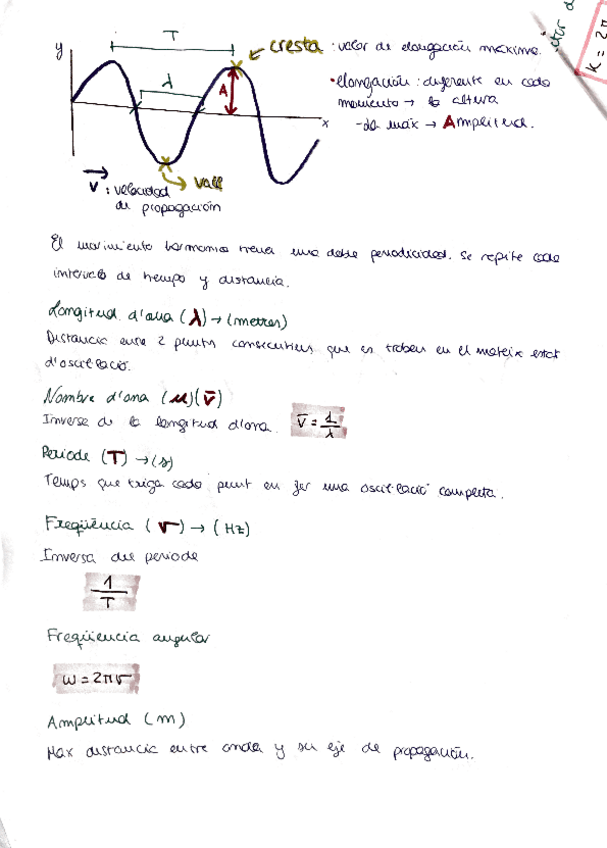 y
T
cresta : valor de elongación máxima.
λ
A
• elongación : diferente en cada
momento → la altura
-la máx → Amplitud.
x
vall
V : velocidad
de propagación
K = 2π
El movimiento harmonico tiene una doble periodicidad. Se repite cada
intervalo de tiempo y distancia.
Longitud d'ona (λ) → (metres)
Distancia entre 2 punts consecutius que es troben en el mateix estat
d'oscil·lació.
Nombre d'ona (μ)(v̄)
Inverse de la longitud d'ona. v̄ = 1/λ
Periode (T) → (s)
Temps que triga cada punt en fer una oscil·lació completa.
Freqüència (ν) → (Hz)
Inversa del periode
1/T
Freqüencia angular
ω = 2πν
Amplitud (m)
Max distancia entre onda y su eje de propagación.